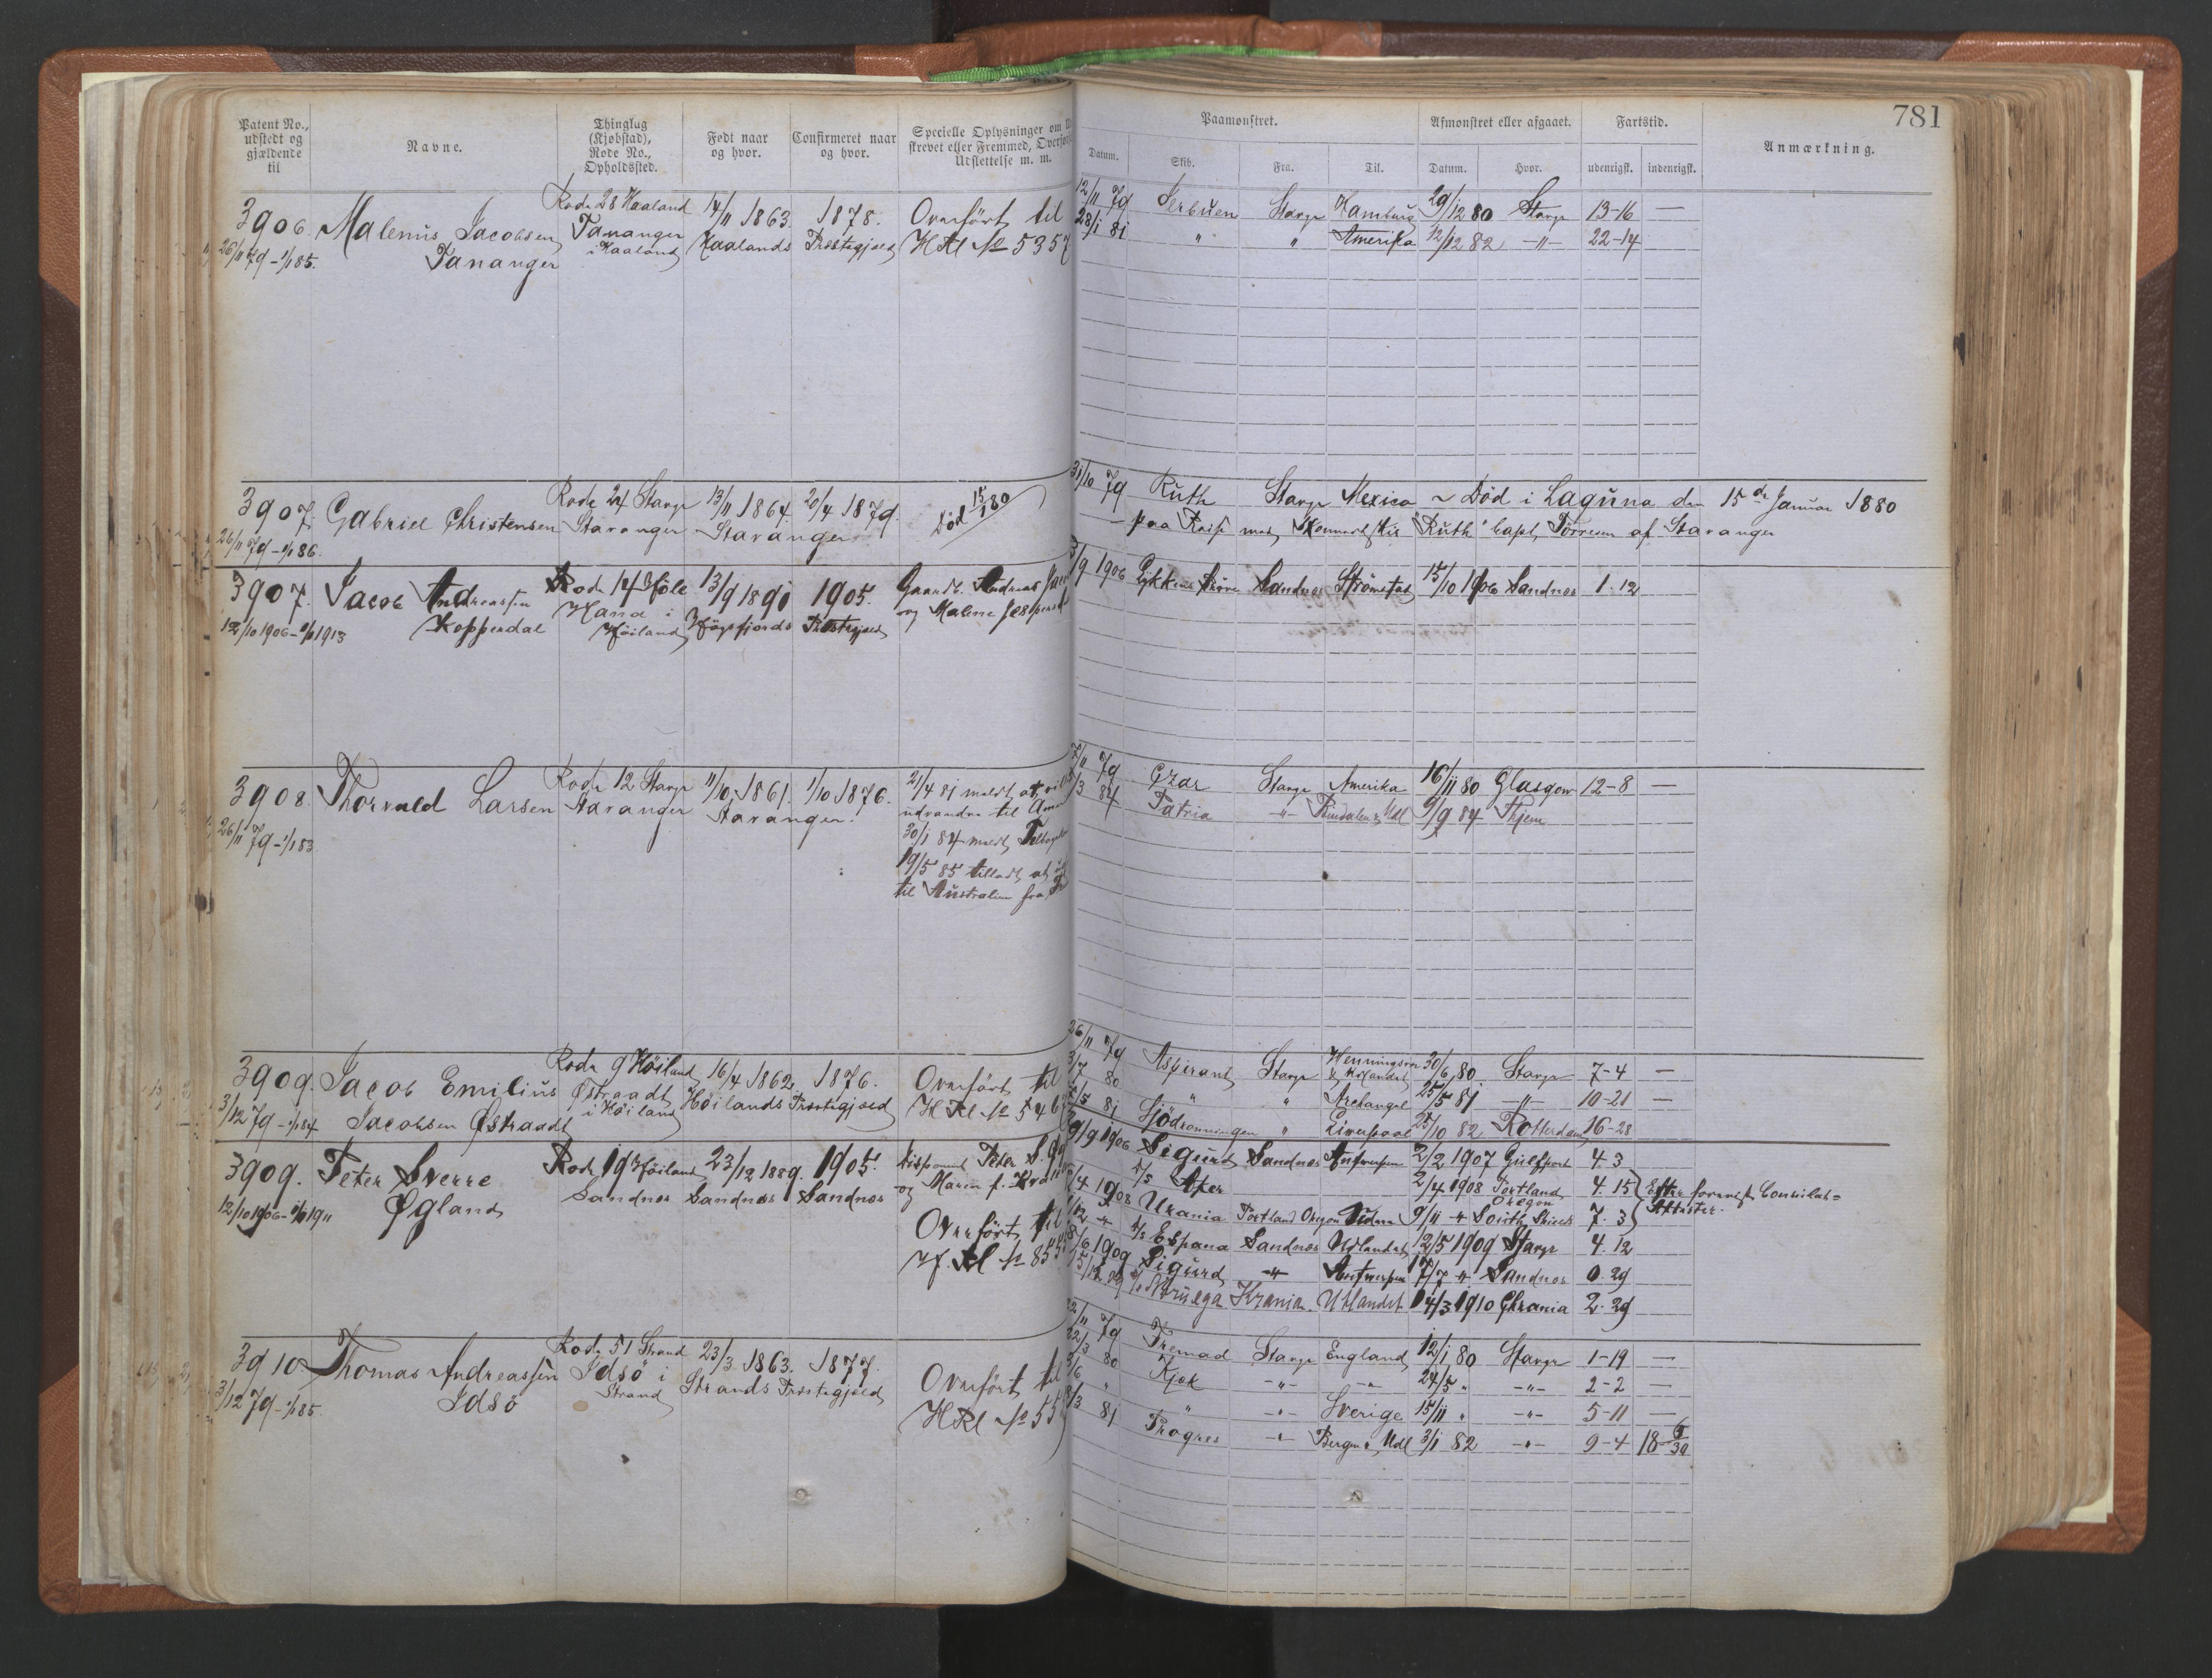 781
Patent No., udstedt og gjældende til
Navne.
Thinglag (Kjøbstad), Rode No., Opholdssted.
Født naar og hvor.
Confirmeret naar og hvor.
Specielle Oplysninger om
strevet eller Fremmed, Overført
Udslettelse m. m.
Paamønstret.
Afmønstret eller afgaaet.
Fartstid.
Anmærkning.
Datum. Skib. Fra. Til. Datum. Hvor. udenrigsk. indenrigsk.
3906. Malenius Jacobsen Rode 28 Haaland 14/11 1863. 1878. Overført til
26/11 79 - 1/1 85. Tananger Tananger i Haaland Haalands Præstegjæld HRl № 5357
12/11 79 Jerbuen Stavgr Hamburg 29/12 80 Stavgr 13-16 —
28/1 81 " " Amerika 12/12 82 —"— 22-14
3907. Gabriel Christensen Rode 24 Stavgr 13/11 1864. 20/4 1879. Død 15/1 80
26/11 79 - 1/1 86. Stavanger Stavanger
31/10 79 Ruth Stavgr Mexico ~ Død i Laguna den 15de Januar 1880
paa Reise med Skonnertskib "Ruth" Capt. Tørresen af Stavanger
3907. Jacob Andreassen Rode 14 Høle 13/9 1890 1905. Gaardb. Andreas
12/10 1906 - 1/1 1913 Kopperdal Hana i Høiland Høgsfjords Præstegjæld og Malene Jespersd
/9 1906 Lykkens Prøve Sandnes Strømstad 15/10 1906 Sandnes 1.12
3908. Thorvald Larsen Rode 12 Stavgr 11/10 1861. 1/10 1876. 21/4 81 meldt at vil
26/11 79 - 1/1 83 Stavanger Stavanger. udvandre til Amer
30/1 84 meldt Tilbage
19/5 85 tilladt at
til Australien fra
7/11 79 Czar Stavgr Amerika 16/11 80 Glasgow 12-8 —
/3 84 Patria —"— Udl 9/9 84 Hjem
3909. Jacob Emilius Rode 9 Høiland 16/4 1862. 1876. Overført til
3/12 79 - 1/1 84 Jacobsen Østraadt Østraadt i Høiland Høilands Præstegjæld HRl № 546
26/11 79 Aspirant Stavgr Henningsvær & Udlandet 30/6 80 Stavgr 7-4 —
3/7 80 " " Archangel 25/5 81 —"— 10-21 —
/5 81 Sjödronningen " Liverpool 25/10 82 Rotterdam 16-28
3909. Peter Sverre Rode 19 Høiland 23/12 1889. 1905. Disponent Peter S.
12/10 1906 - 1/1 1911 Øgland Sandnes Sandnes Sandnes og Maren f.
Overført til
H. Rl № 855
9/9 1906 Sigurd Sandnes Antwerpen 2/2 1907 Gulfport 4.3
2/4 1908 Portland Oregon 4.15 Efter forevist Consulat=
/4 1908 Urania Portland Oregon 9/11 " South Shields 7.3 Attester.
/12 " D/s Espana Sandnes Udlandet 12/5 1909 Stavgr 4.12
8/6 1909 Sigurd —"— Antwerpen 17/7 " Sandnes 0.29
15/12 09 Noruega Krania. Utlandet 14/3 1910 Chrania 2.29
3910. Thomas Andreassen Rode 51 Strand 23/3 1863. 1877. Overført til
3/12 79 - 1/1 85. Idsö Idsö i Strand Strands Præstegjæld HRl № 55
22/11 79 Fremad Stavgr England 12/1 80 Stavgr 1-19 —
22/3 80 Kjæk —"— —"— 24/5 " —"— 2-2 —
3/6 " " —"— Sverige 15/11 " —"— 5-11 —
/3 81 Progres —"— Bergen & Udl 3/1 82 —"— 9-4 18-6/30